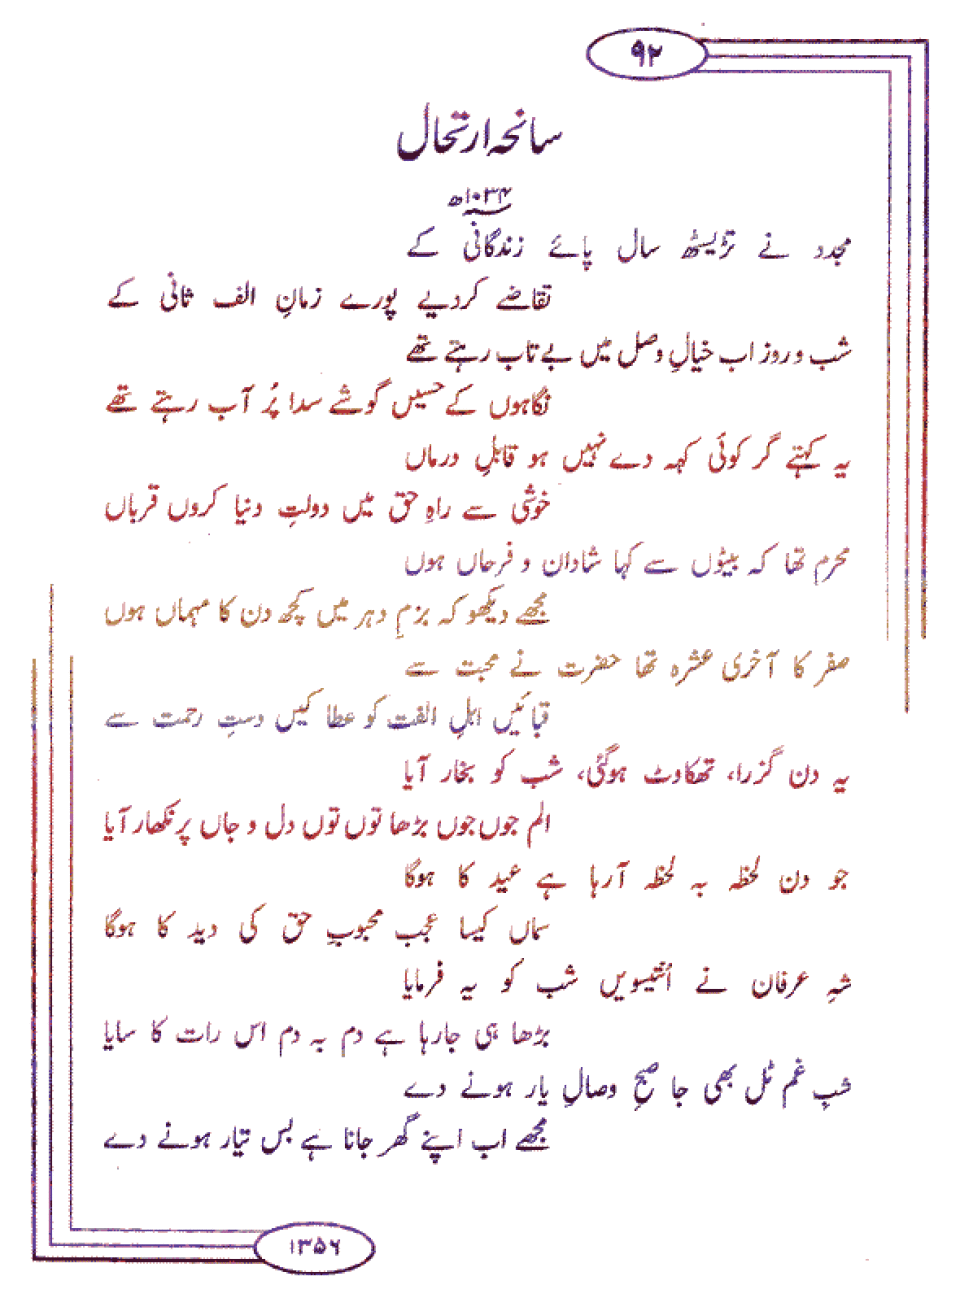 ۹۲
سانحہ ارتحال
۱۰۳۴ھ
مجدد نے تڑیسٹھ سال پائے زندگانی کے
تقاضے کردیے پورے زمانِ الف ثانی کے
شب و روز اب خیالِ وصل میں بے تاب رہتے تھے
نگاہوں کے حسیں گوشے سدا پُر آب رہتے تھے
یہ کہتے گر کوئی کہہ دے نہیں ہو قابلِ درماں
خوشی سے راہِ حق میں دولتِ دنیا کروں قرباں
محرم تھا کہ بیٹوں سے کہا شاداں و فرحاں ہوں
مجھے دیکھو کہ بزمِ دہر میں کچھ دن کا مہماں ہوں
صفر کا آخری عشرہ تھا حضرت نے محبت سے
قبائیں اہلِ الفت کو عطا کیں دستِ رحمت سے
یہ دن گزرا، تھکاوٹ ہوگئی، شب کو بخار آیا
الم جوں جوں بڑھا توں توں دل و جاں پر نکھار آیا
جو دن لحظہ بہ لحظہ آرہا ہے عید کا ہوگا
سماں کیسا عجب محبوبِ حق کی دید کا ہوگا
شہِ عرفان نے اُنتیسویں شب کو یہ فرمایا
بڑھا ہی جارہا ہے دم بہ دم اس رات کا سایا
شبِ غم ٹل بھی جا صبحِ وصالِ یار ہونے دے
مجھے اب اپنے گھر جانا ہے بس تیار ہونے دے
۱۳۵۶